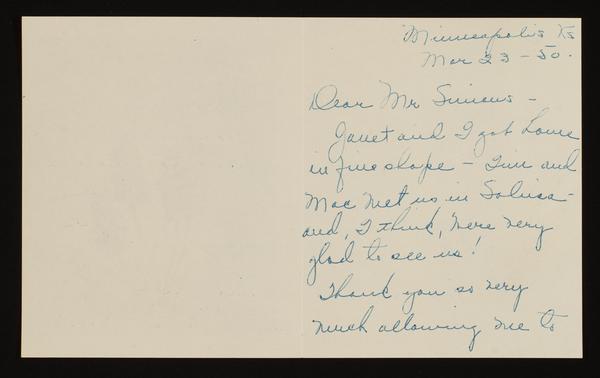 Minneapolis Ks
Mar 23-50.
Dear Mr Simons -
Janet and I got home
in fine shape - Tim and
Mac met us in Salina -
and, I think, were very
glad to see us!
Thank you so very
much allowing me to